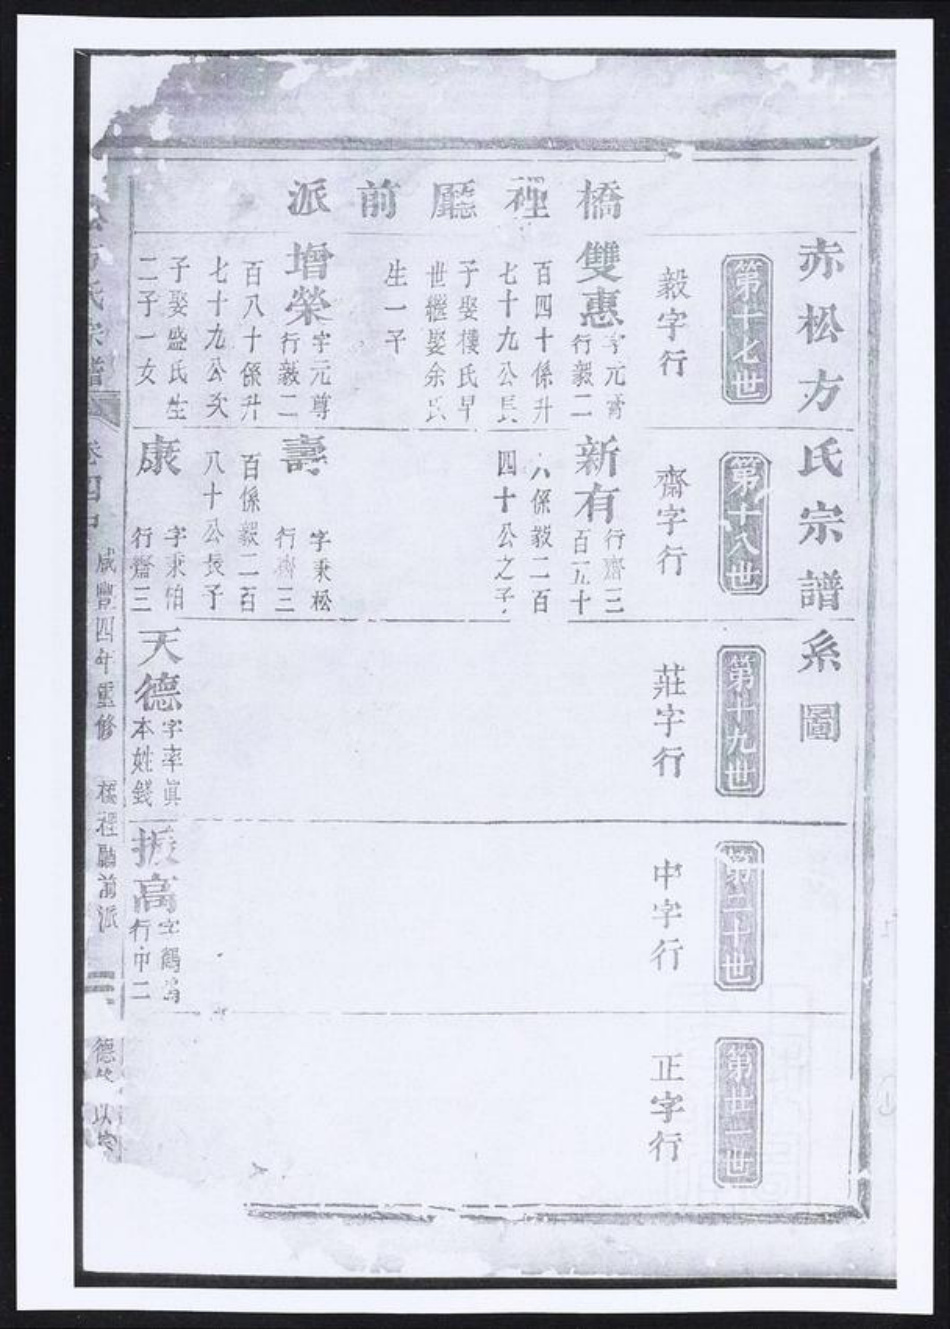 赤松方氏宗譜系圖
第十七世
毅字行
第十八世
齋字行
第十九世
莊字行
第二十世
中字行
第廿一世
正字行
橋裡廳前派
雙惠
字元膏
行毅二
百四十係升
七十九公長
子娶樓氏早
世繼娶余氏
生一子
新有
行齋三
百五十
八係毅二百
四十公之子
增榮
字元尊
行毅二
百八十係升
七十九公次
子娶盛氏生
二子一女
壽
字秉松
行齋三
百係毅二百
八十公長子
康
字秉怕
行齋三
天德
字率眞
本姓錢
振高
字鶴
行中二
松方氏宗譜
卷四
咸豐四年重修
橋裡廳前派
二
德
以